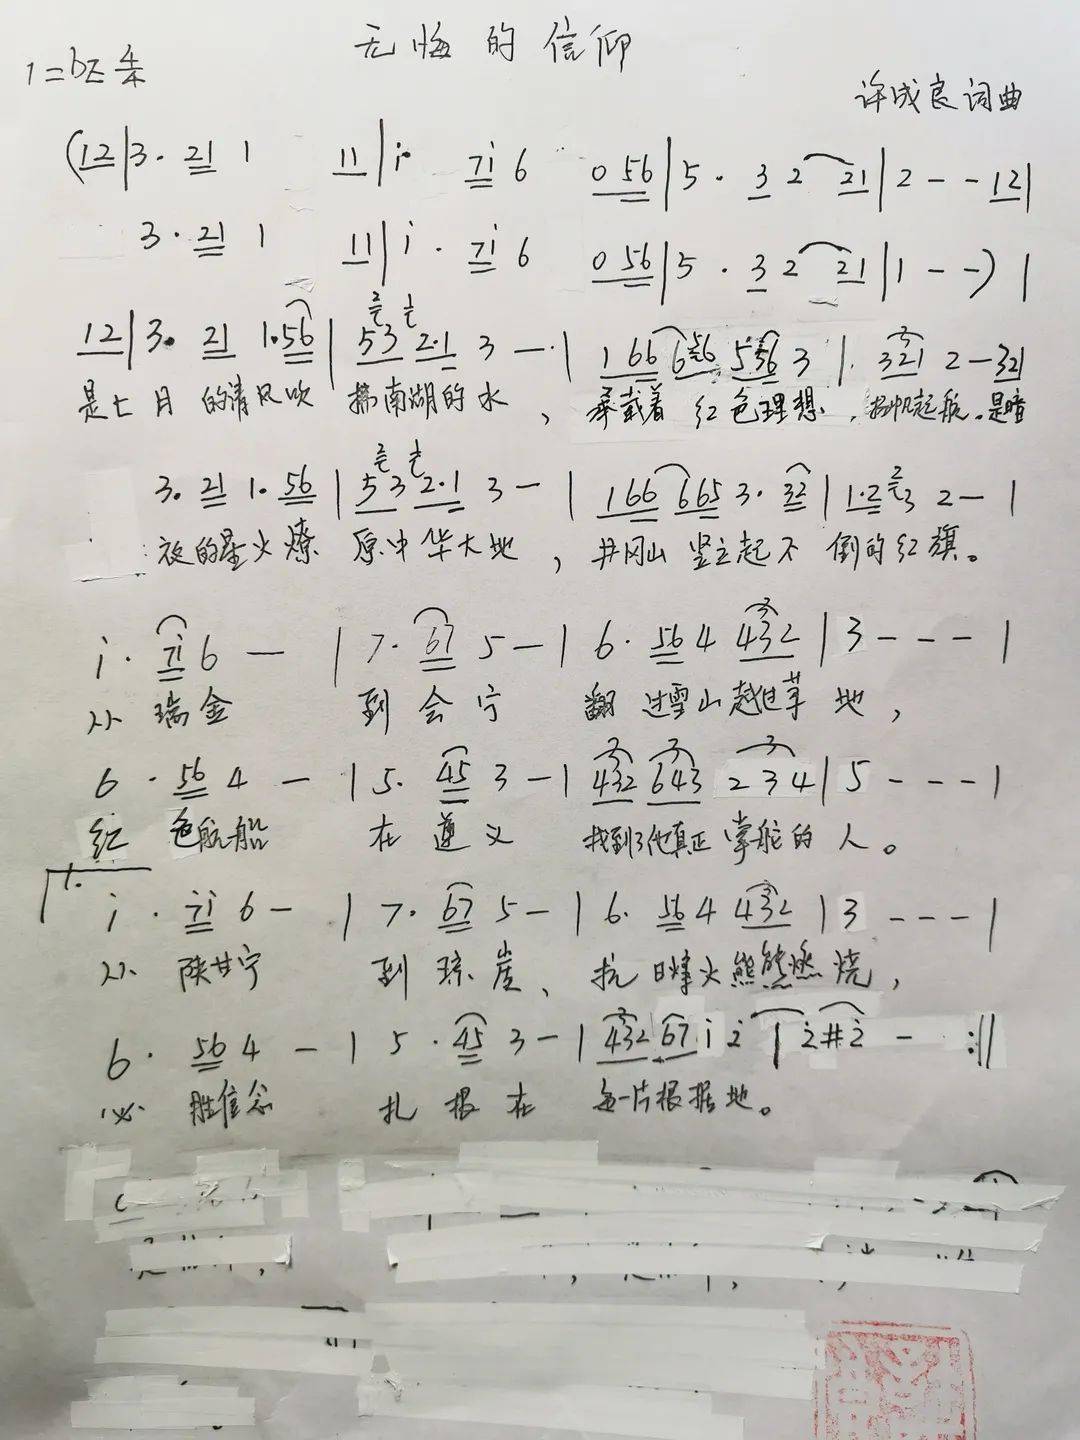 无悔的信仰
1=bE 4/4
许成良词曲
(12|3· 21 1 11|i· 7i 6 0 56|5· 3 2 21|2 - - 12|
3· 21 1 11|i· 7i 6 0 56|5· 3 2 21|1 - -) |
12|3· 21 1·56|53 2·1 3 -·|166 656 556 3|1· 321 2 - 32|
是七月的清风吹拂南湖的水，承载着红色理想，扬帆起航。是暗
3· 21 1·56|53 2·1 3 -|166 665 3· 32|1·2 3 2 -|
夜的星火燎原中华大地，井冈山竖立起不倒的红旗。
i· 7i 6 -|7· 67 5 -|6· 56 4 432|3 - - -|
从瑞金到会宁翻过雪山越过草地，
6· 56 4 -|5· 45 3 -|432 643 2 3 4|5 - - -|
红色航船在遵义找到了他真正掌舵的人。
1.
i· 7i 6 -|7· 67 5 -|6· 56 4 432|3 - - -|
从陕甘宁到琼崖、抗日烽火熊熊燃烧，
6· 56 4 -|5· 45 3 -|432 67 i 2|2 #2 - :||
必胜信念扎根在每一片根据地。